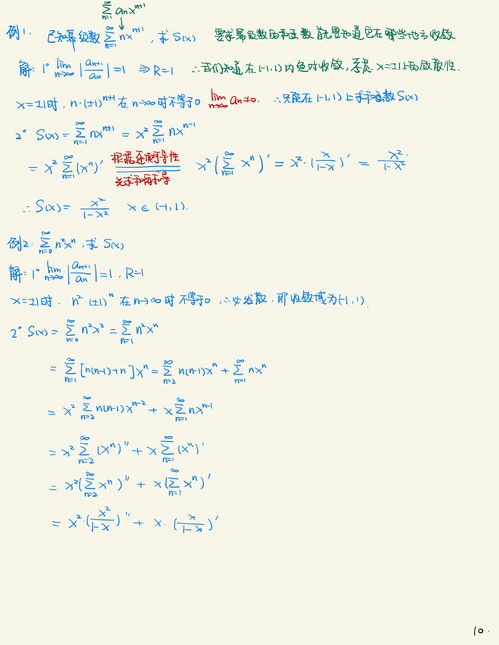 ∑_{n=1}^{∞} aₙxⁿ⁺¹
例1. 已知幂级数 ∑_{n=1}^{∞} nxⁿ⁺¹, 求 S(x) 要求幂级数的和函数 首先知道它在哪些地方收敛
解: 1° lim_{n→∞} |aₙ₊₁/aₙ| = 1 ⇒ R=1 ∴我们知道在(-1,1)内绝对收敛, 考虑 x=±1上的敛散性.
x=±1时, n·(±1)ⁿ⁺¹ 在 n→∞ 时不等于0 lim_{n→∞} aₙ≠0. ∴只能在(-1,1)上求和函数S(x)
2° S(x) = ∑_{n=1}^{∞} nxⁿ⁺¹ = x² ∑_{n=1}^{∞} nxⁿ⁻¹
= x² ∑_{n=1}^{∞} (xⁿ)' 根据逐项可导性 先求和再求导 x² (∑_{n=1}^{∞} xⁿ)' = x²·(x/(1-x))' = x²/(1-x²)
∴ S(x) = x²/(1-x²) x∈(-1,1).
例2. ∑_{n=0}^{∞} n²xⁿ, 求 S(x)
解: 1° lim_{n→∞} |aₙ₊₁/aₙ| = 1, R=1
x=±1时, n²·(±1)ⁿ 在 n→∞ 时不等于0, ∴必发散, 即收敛域为(-1,1).
2° S(x) = ∑_{n=0}^{∞} n²xⁿ = ∑_{n=1}^{∞} n²xⁿ
= ∑_{n=1}^{∞} [n(n-1)+n] xⁿ = ∑_{n=2}^{∞} n(n-1)xⁿ + ∑_{n=1}^{∞} nxⁿ
= x² ∑_{n=2}^{∞} n(n-1)xⁿ⁻² + x∑_{n=1}^{∞} nxⁿ⁻¹
= x² ∑_{n=2}^{∞} (xⁿ)'' + x ∑_{n=1}^{∞} (xⁿ)'
= x² (∑_{n=2}^{∞} xⁿ)'' + x(∑_{n=1}^{∞} xⁿ)'
= x²·(x²/(1-x))'' + x·(x/(1-x))'
10.